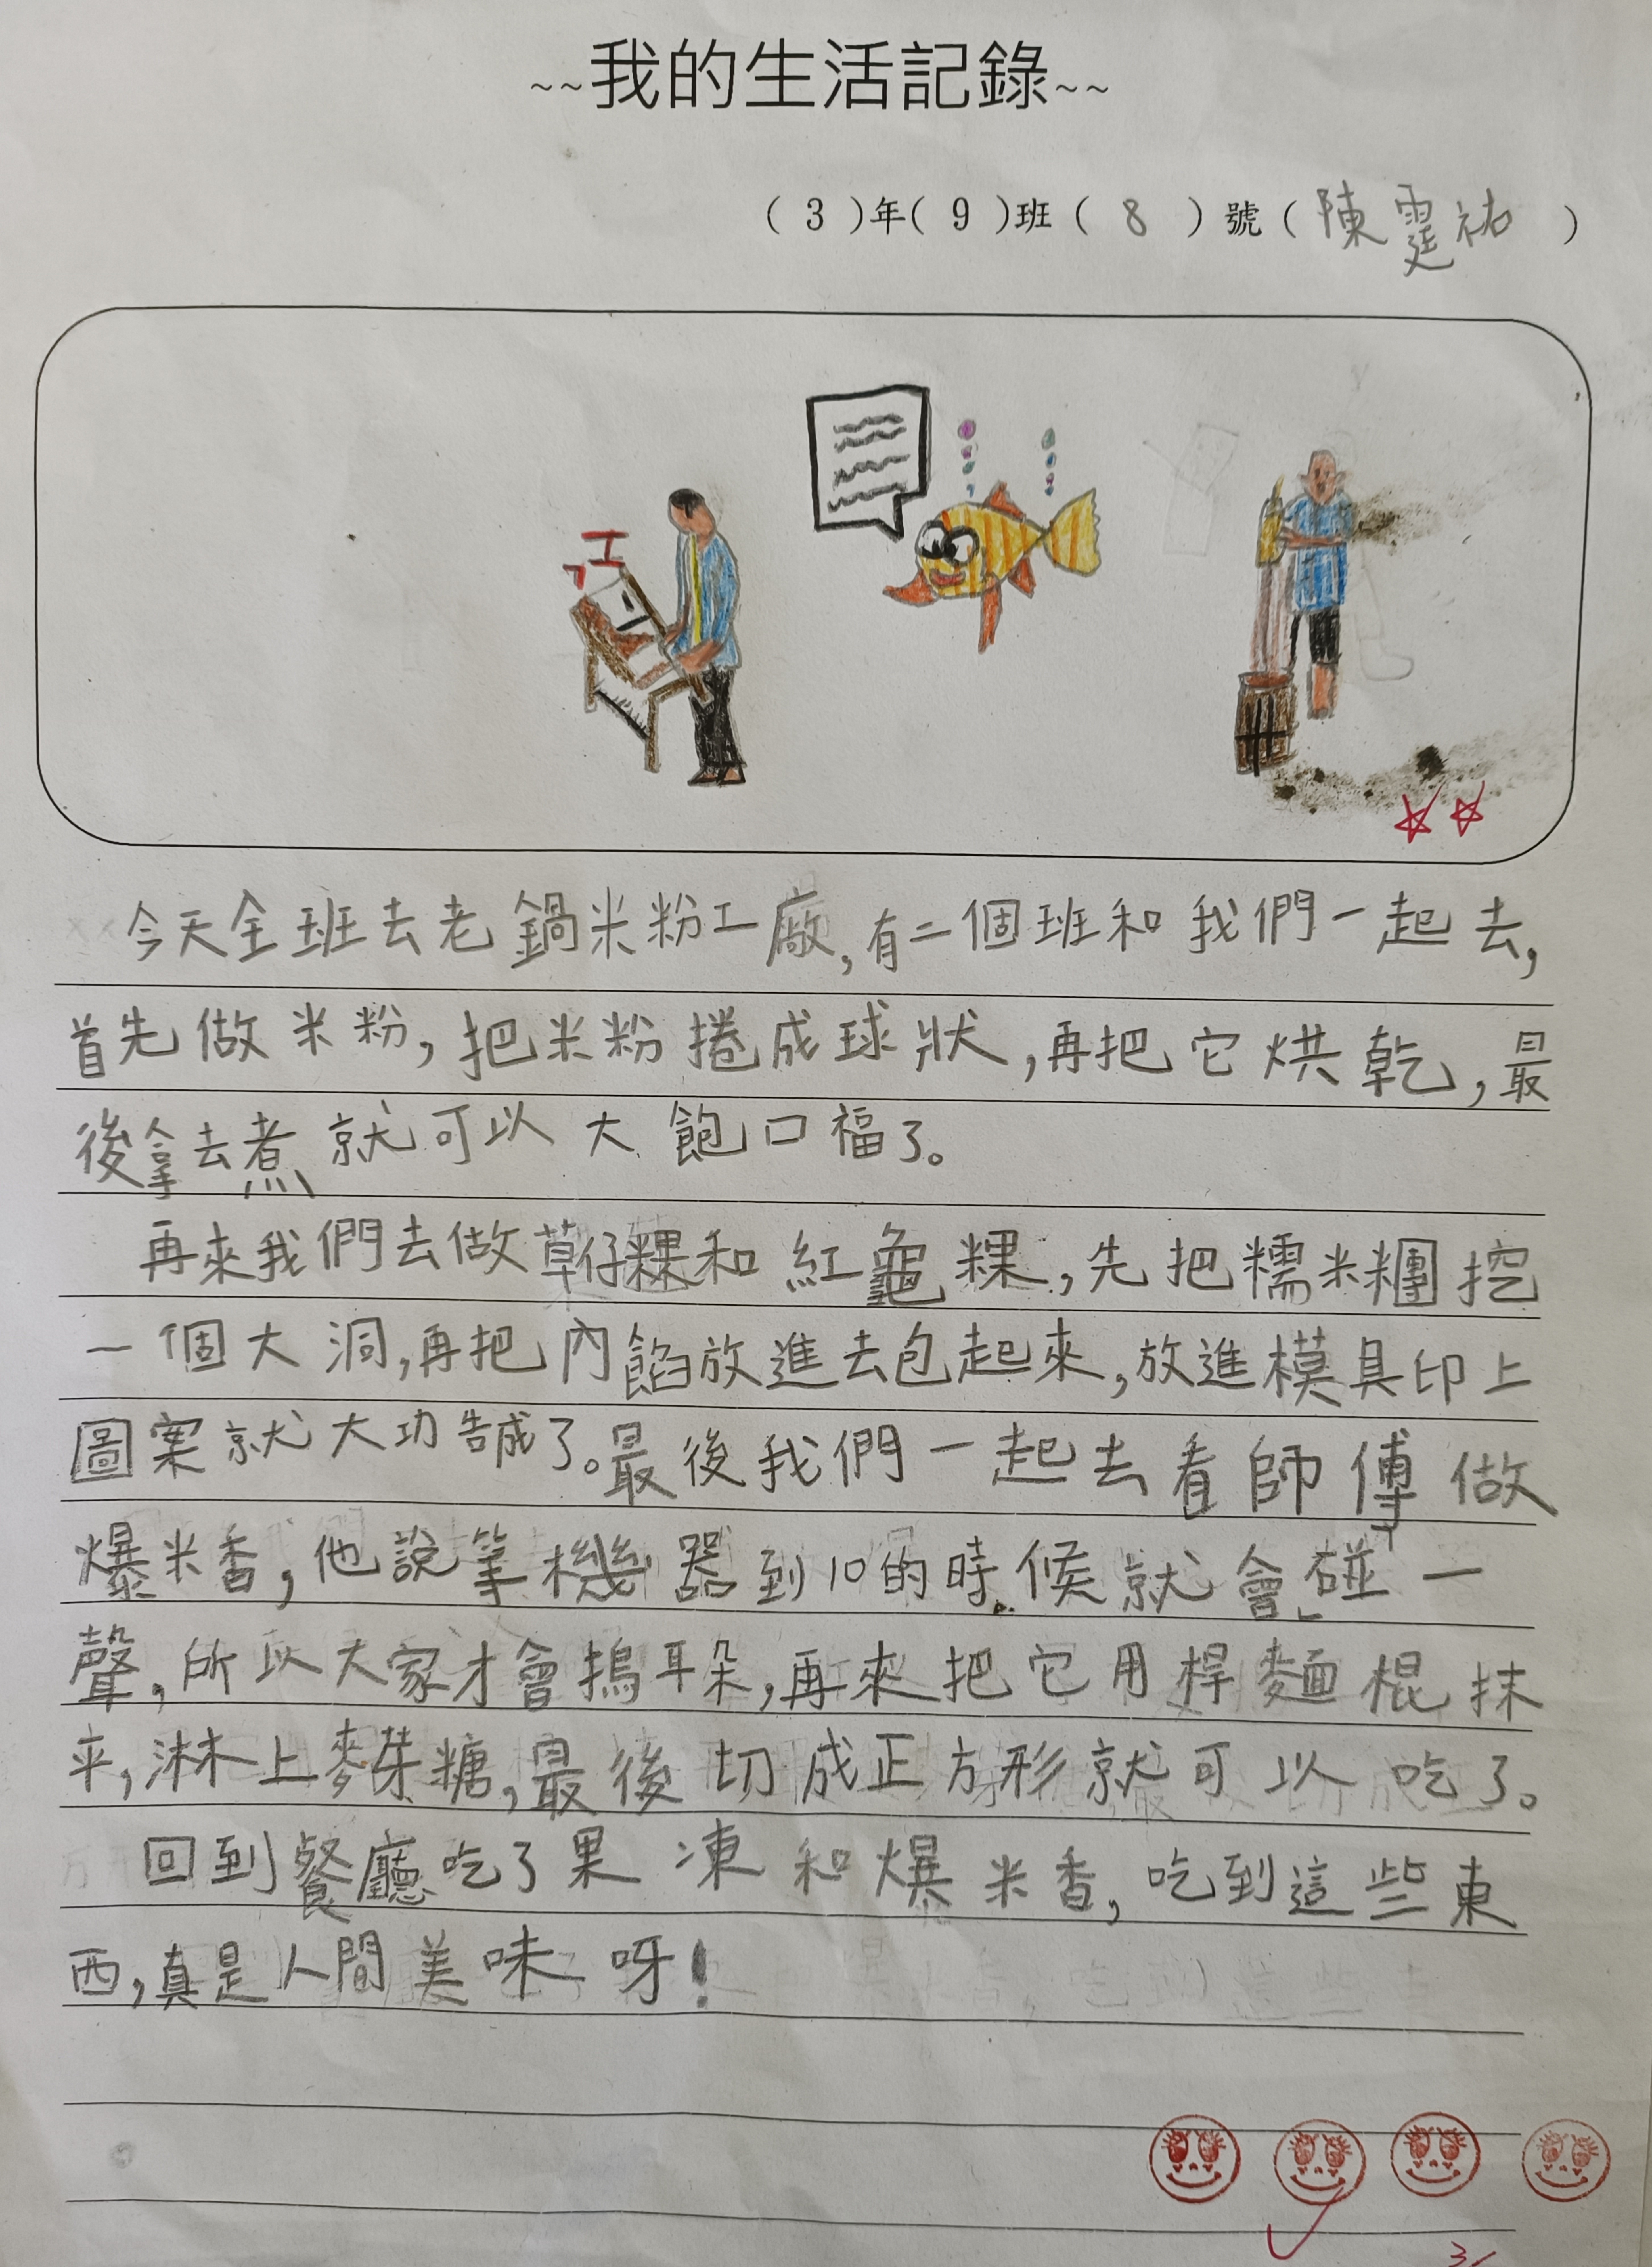 ~~我的生活記錄~~
( 3 )年( 9 )班( 8 )號(陳霆祐)
今天全班去老鍋米粉工廠,有二個班和我們一起去,
首先做米粉,把米粉捲成球狀,再把它烘乾,最
後拿去煮就可以大飽口福了。
再來我們去做草仔粿和紅龜粿,先把糯米糰挖
一個大洞,再把內餡放進去包起來,放進模具印上
圖案就大功告成了。最後我們一起去看師傅做
爆米香,他說等機器到10的時候就會碰一
聲,所以大家才會摀耳朵,再來把它用桿麵棍抹
平,淋上麥芽糖,最後切成正方形就可以吃了。
回到餐廳吃了果凍和爆米香,吃到這些東
西,真是人間美味呀!